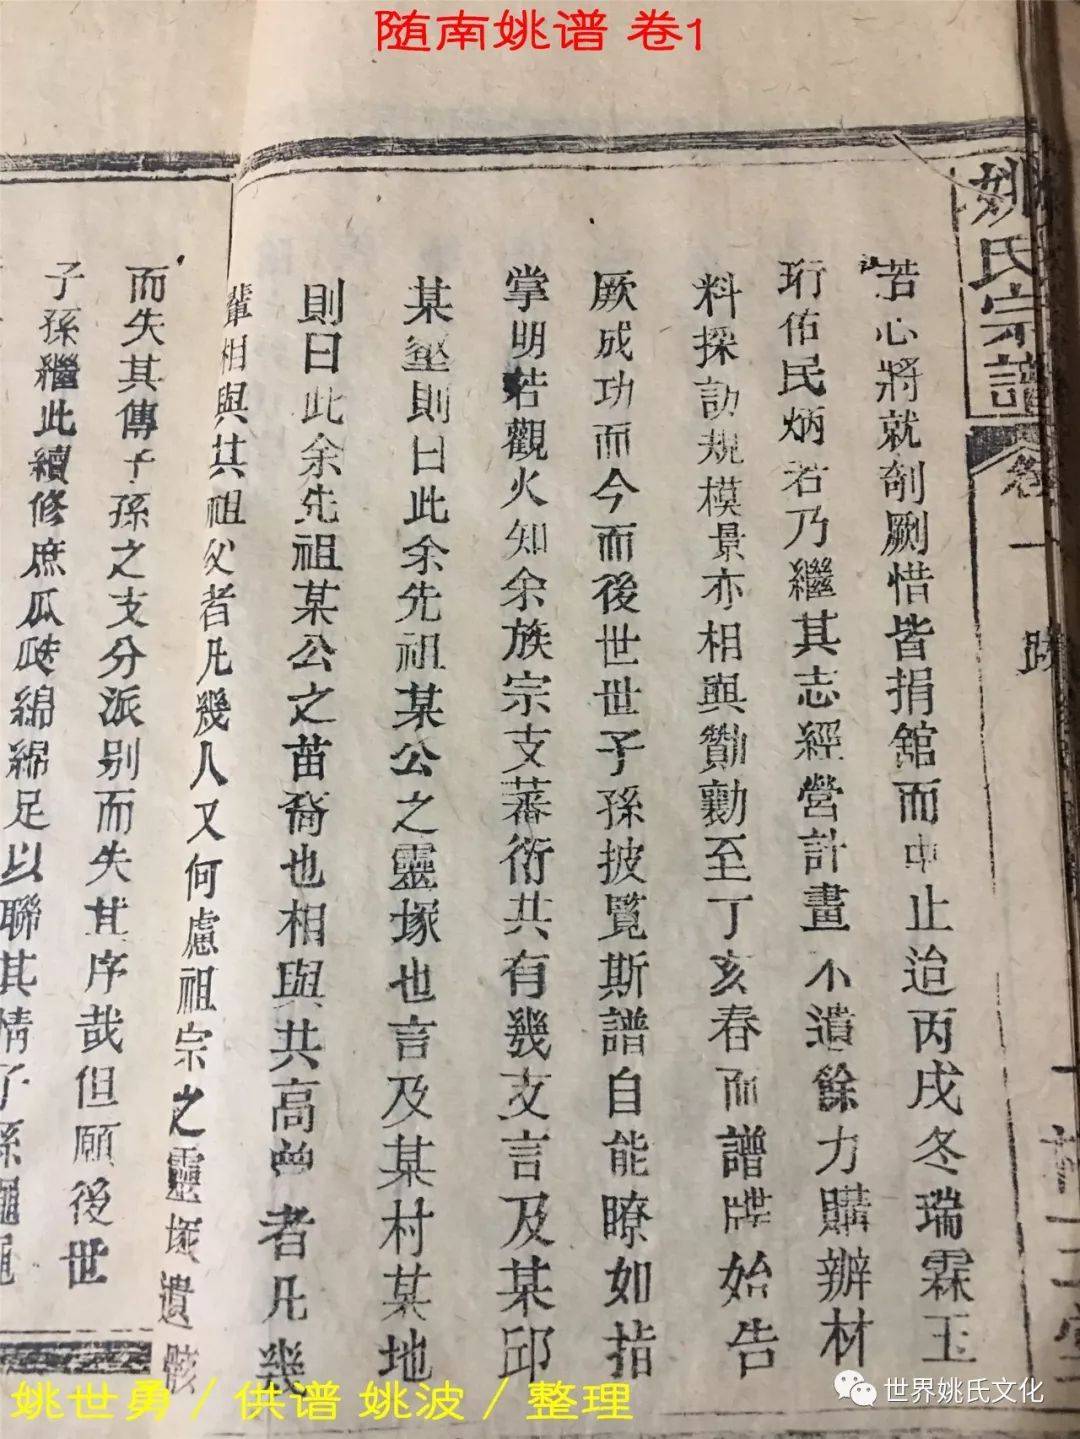 随南姚谱 卷1
姚氏宗譜
卷一
跋
苦心將就剞劂惜皆捐舘而中止迨丙戌冬瑞霖玉
珩佑民炳若乃繼其志經營計畫不遺餘力購辦材
料採訪規模景亦相與勷勷至丁亥春而譜牒始告
厥成功而今而後世世子孫披覧斯譜自能瞭如指
掌明若觀火知余族宗支蕃衍共有幾支言及某邱
某壑則曰此余先祖某公之靈塚也言及某村某地
則曰此余先祖某公之苗裔也相與共高曾者凡幾
輩相與共祖父者凡幾人又何慮祖宗之靈塚遺骸
而失其傳子孫之支分派别而失其序哉但願後世
子孫繼此續修庶瓜瓞綿綿足以聯其情子孫繩繩
姚世勇/供谱 姚波/整理
世界姚氏文化